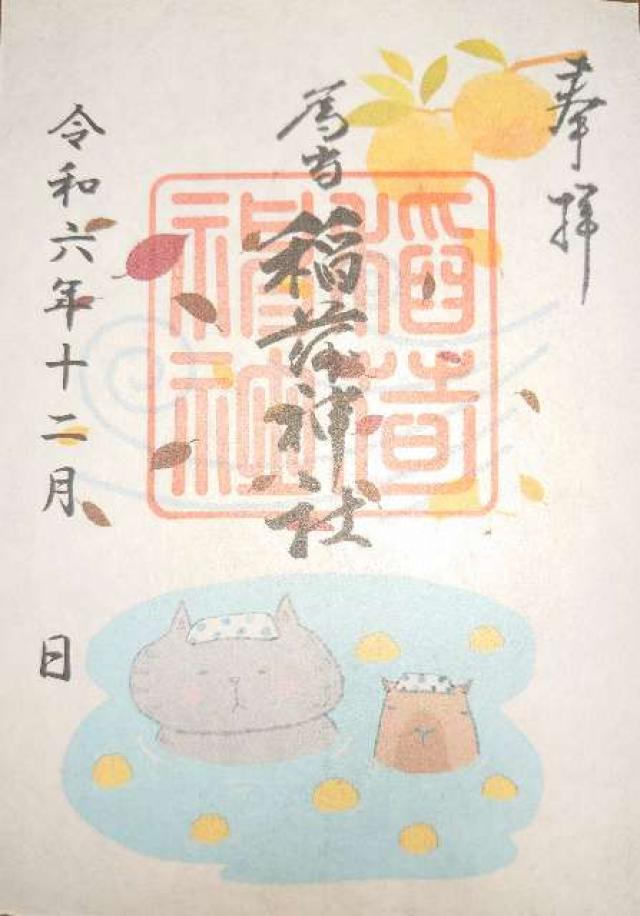 奉拝
為当
稲荷神社
稲荷
神社
令和六年十二月
日